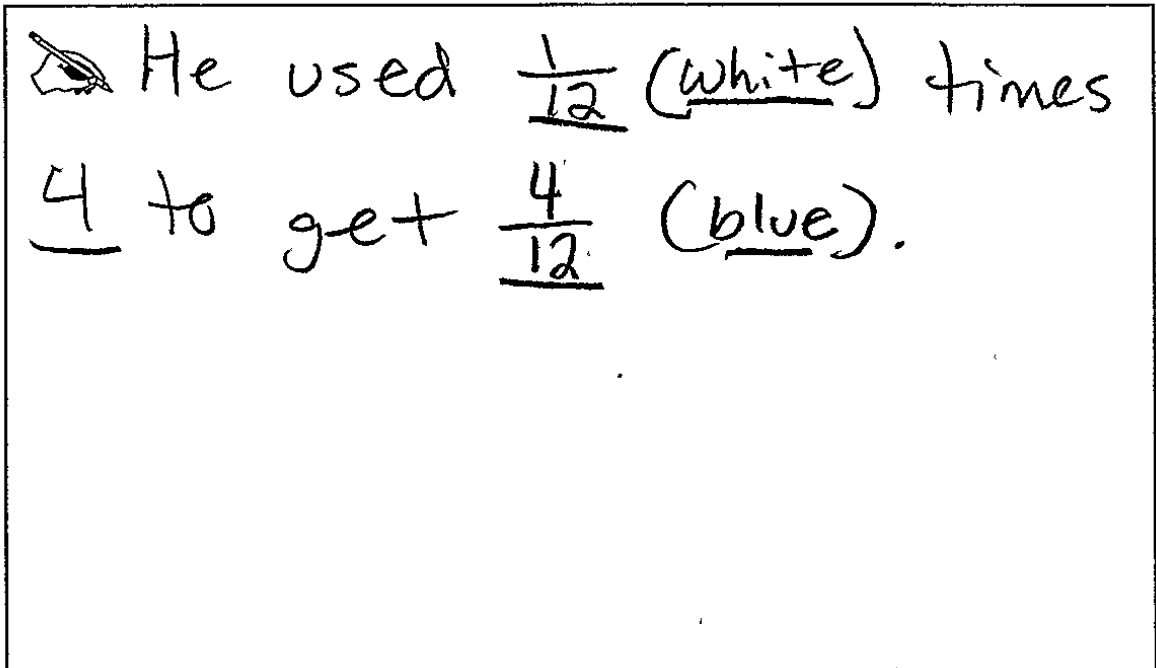 He used 1/12 (white) times
4 to get 4/12 (blue).